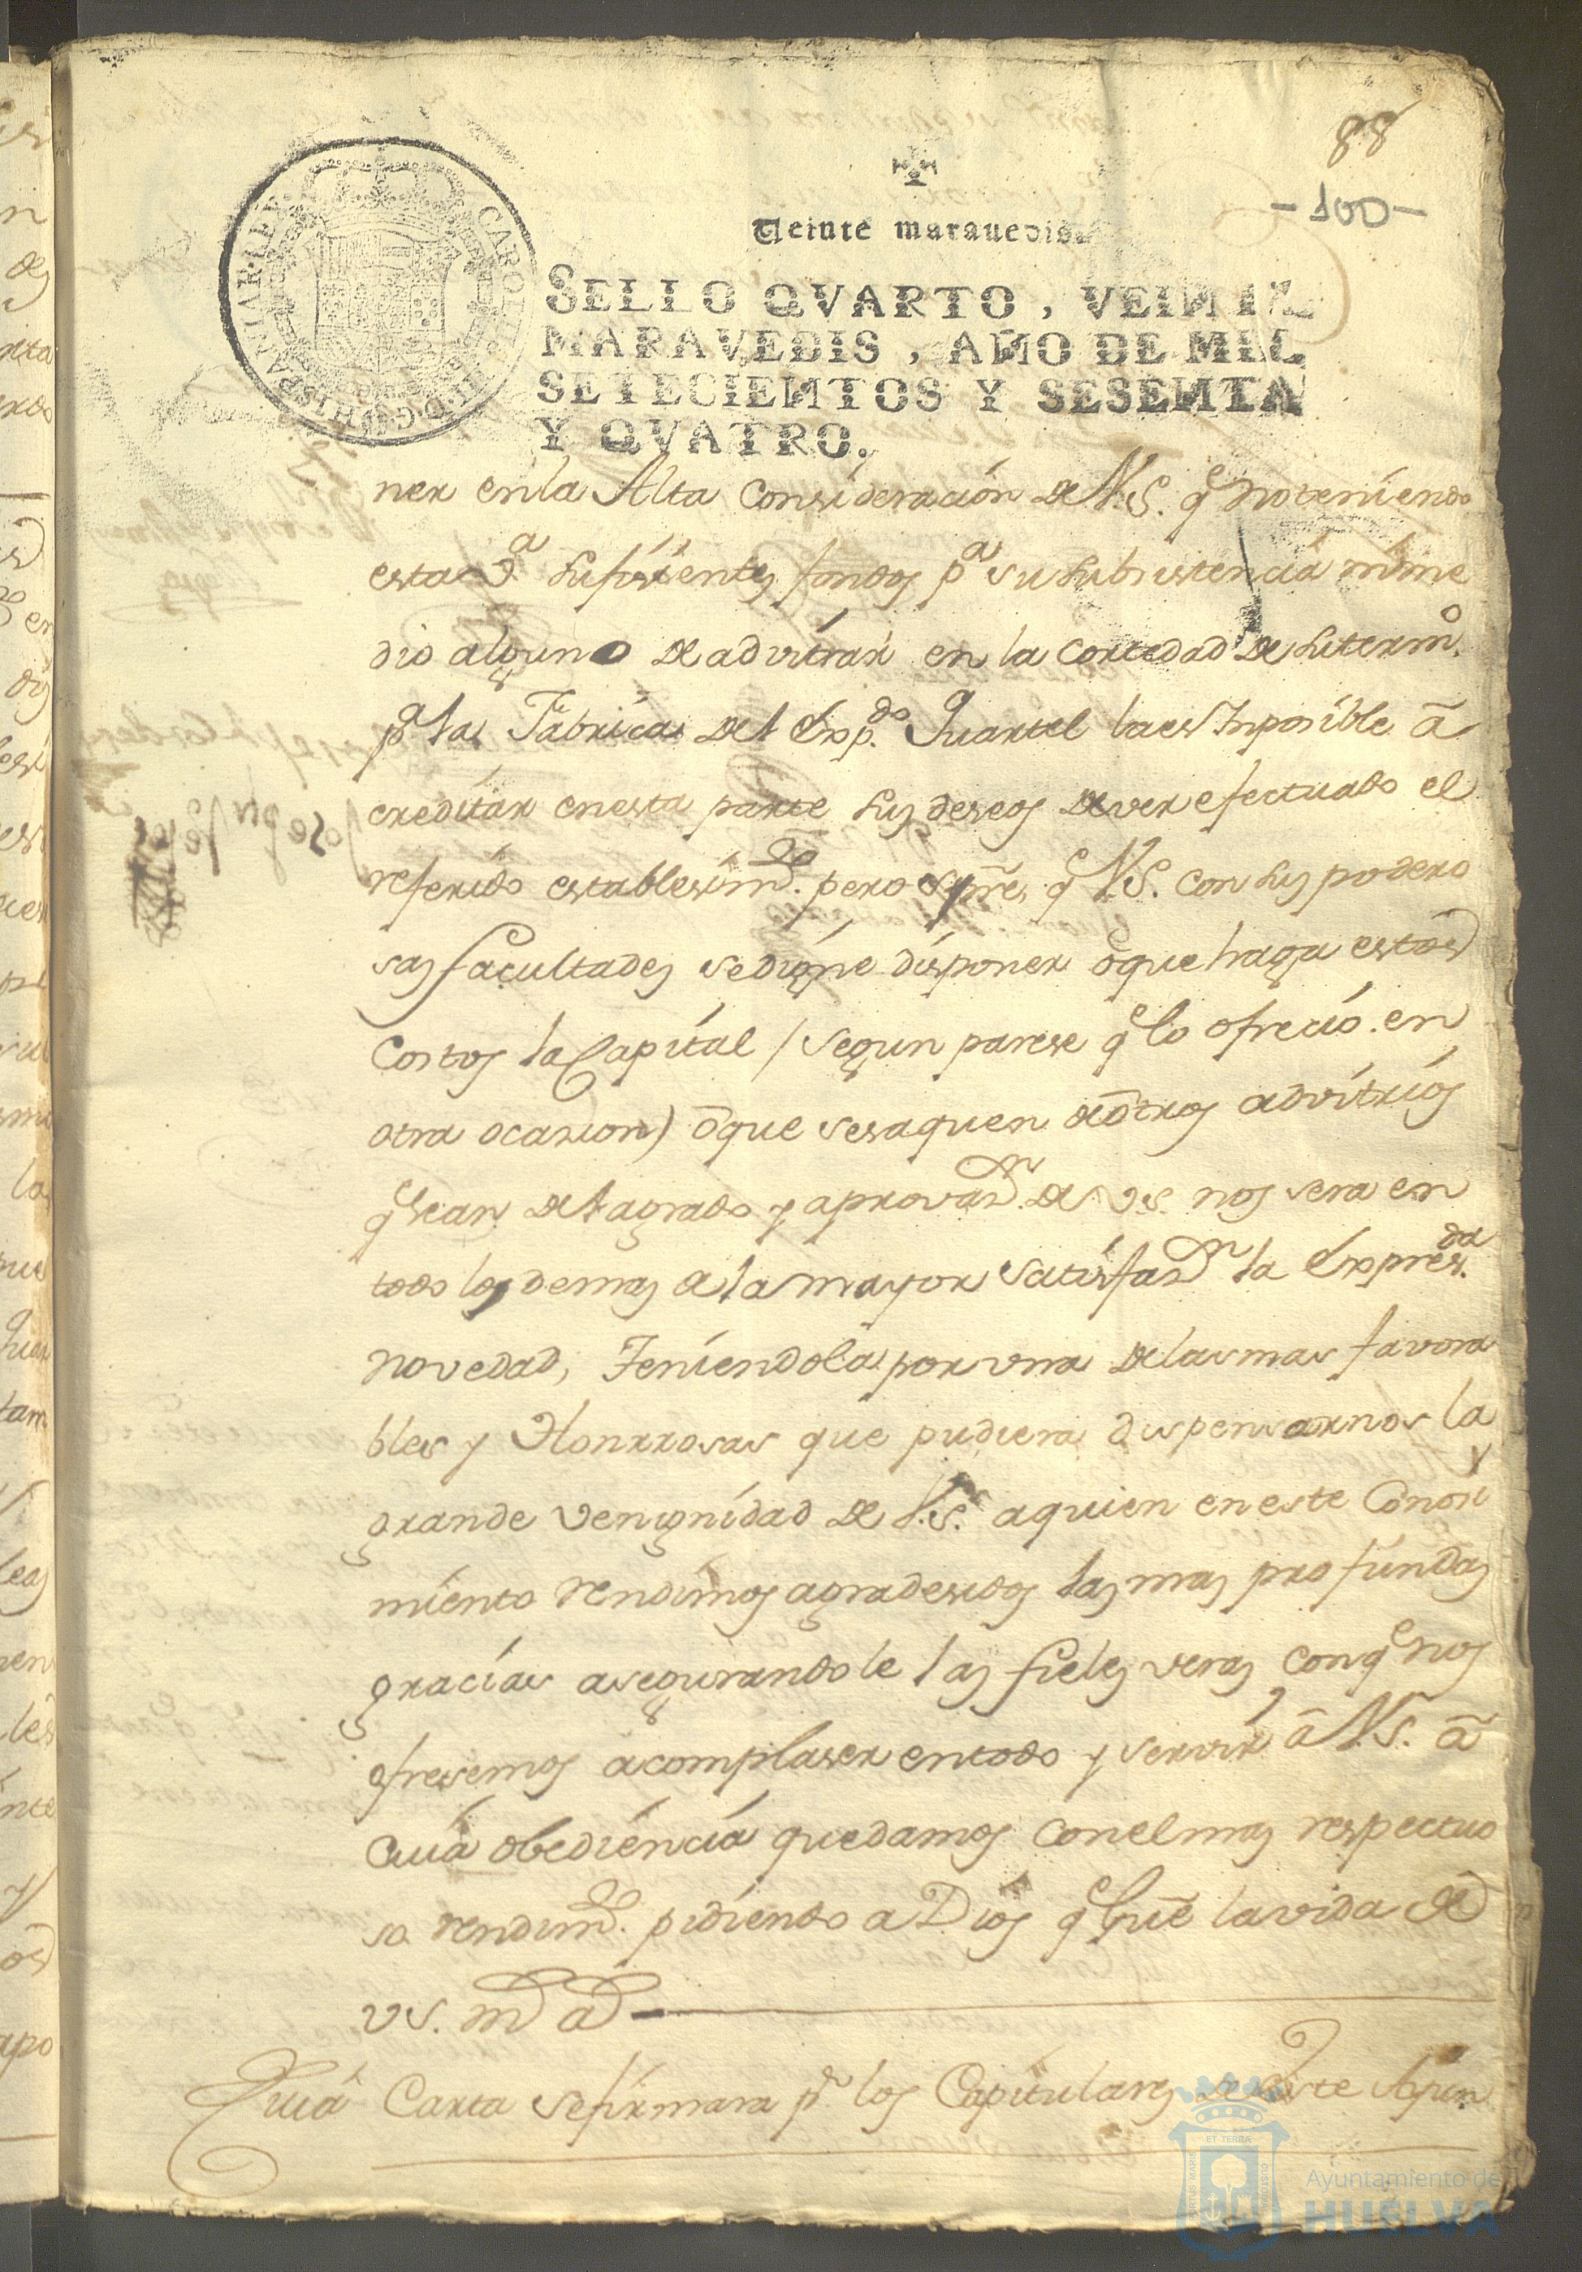 88
- 100 -
Veinte marauedis.
SELLO QVARTO, VEINTE
MARAVEDIS, AÑO DE MIL
SETECIENTOS Y SESENTA
Y QVATRO.
CAROL III D.G. HISPANIAR. REX
ner en la Alta Consideracion de V.S. q.e no teniendo
esta V.a sufisientes fondos p.a su subsistencia ni me
dio alguno de advitrar en la cortedad de su term.o
p.a la Fabrica del Exp.do Quartel la es Inposible a
creditar en esta parte sus deseos de ver efectuado el
referido establesim.to pero sp̃re q.e V.S. con sus podero
sas facultades se digne disponer o que haga estos
Costos la Capital / segun parese q.e lo ofrecio en
otra ocasion) o que se saquen de otros advitrios
q.e sean del agrado y aprovaz.n de V.S. nos sera en
todo los demas de la mayor satisfaz.n la Expres.da
novedad, Teniendola por vna de las mas favora
bles y Honrrosas que pudiera dispensarnos la
grande venignidad de V.S. a quien en este Conosi
miento rendimos agradesidos las mas profundas
gracias asegurandole las fieles veras con q.e nos
ofresemos a complaser en todo y servir a V.S. a
cuia obediencia quedamos con el mas respectuo
so rendim.to pidiendo a Dios q.e gue la vida de
V.S. m.s a.s
Cuia Carta se firmara p.r los Capitulares de este Ayun
Joseph de
ET TERRÆ
Ayuntamiento de
HUELVA